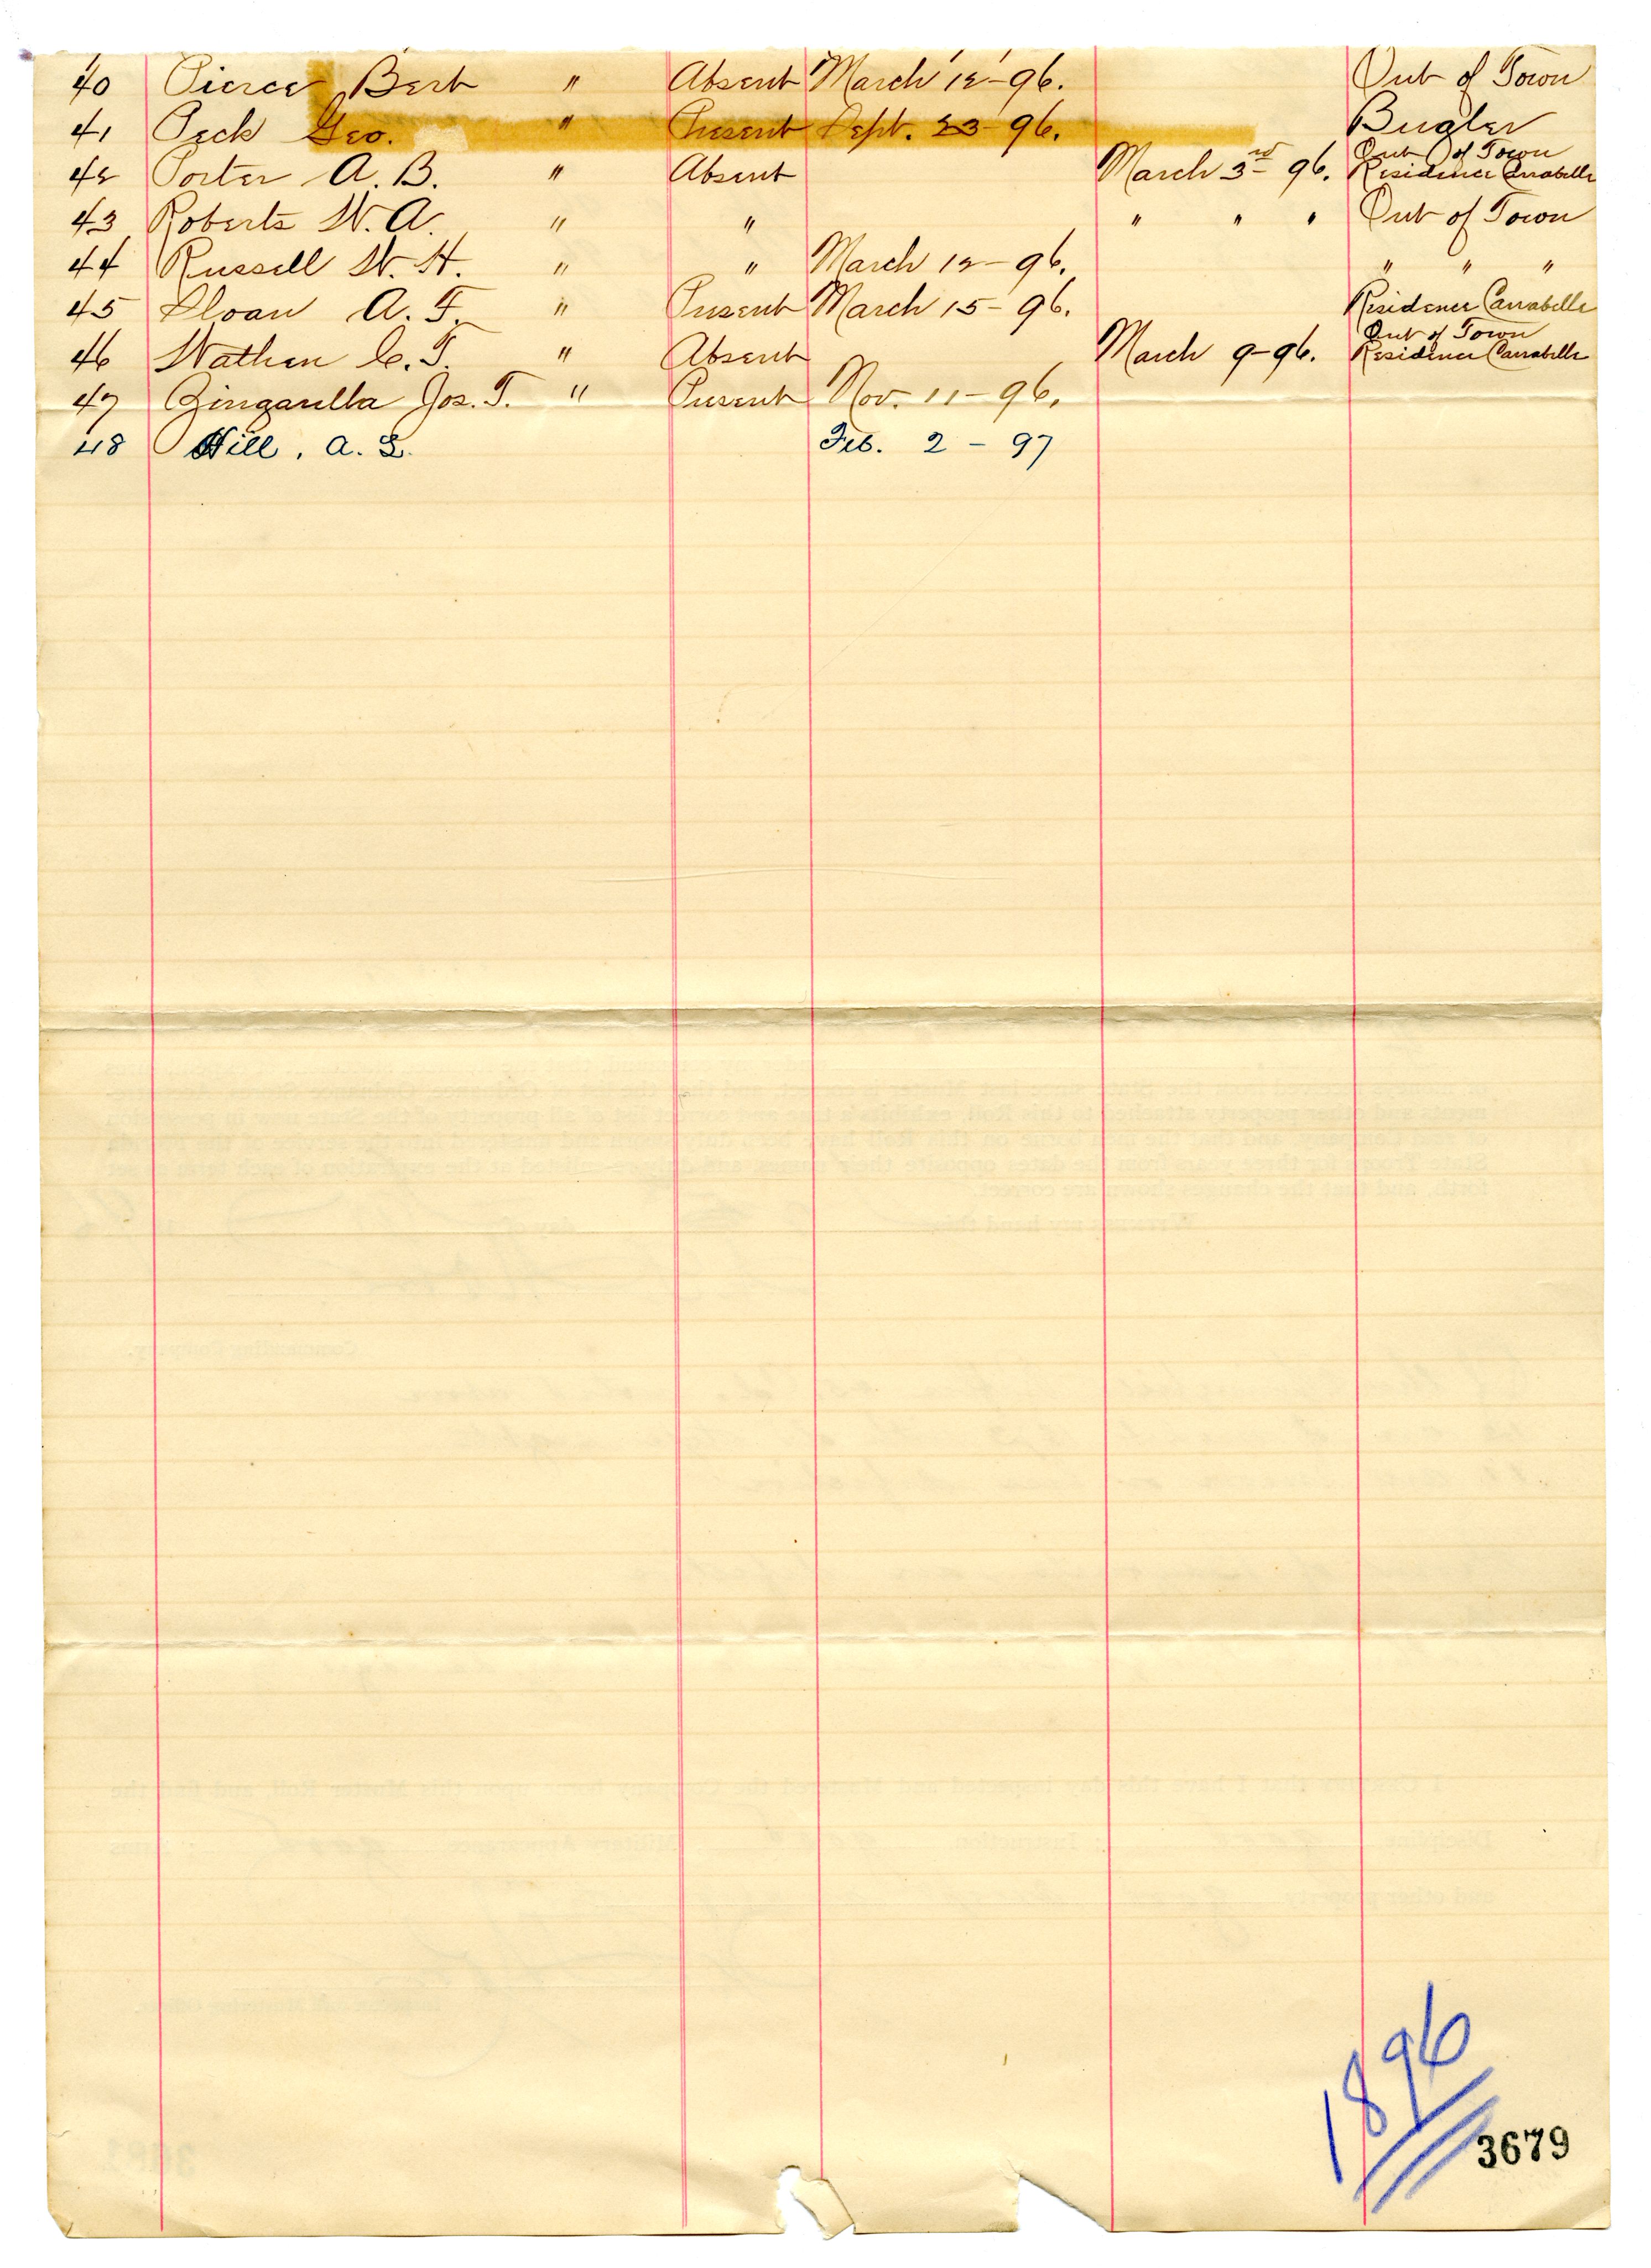 40 Pierce Bert " Absent March 12-96. Out of Town
41 Peck Geo. " Present Sept. 23-96. Bugler
42 Porter A. B. " Absent March 3rd 96. Out of Town Residence Carrabelle
43 Roberts W. A. " " " " " Out of Town
44 Russell W. H. " " March 12-96. " " "
45 Sloan A. F. " Present March 15-96. Residence Carrabelle
46 Wathen C. T. " Absent March 9-96. Out of Town Residence Carrabelle
47 Zingarella Jos. T. " Present Nov. 11-96.
48 Hill, A. S. Feb. 2 - 97
1896
3679